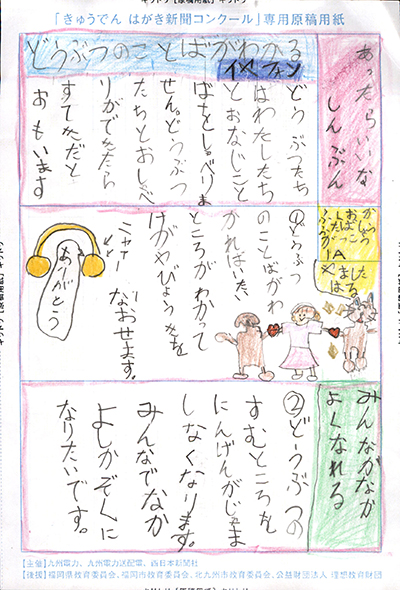 「きゅうでん はがき新聞コンクール」専用原稿用紙
どうぶつのことばがわかる
イヤフォン
あったらいいな
しんぶん
どうぶつたち
はわたしたち
とおなじこと
ばをしゃべりま
せん。どうぶつ
たちとおしゃべ
りができたら
すてきだと
おもいます
がっこう
1A
やました
はる
①どうぶつ
のことばがわ
かればいたい
ところがわかって
けがやびょうきを
なおせます。
ニャー
ありがとう
みんながなか
よくなれる
②どうぶつの
すむところを
にんげんがじゃま
しなくなります。
みんなでなか
よしかぞくに
なりたいです。
【主催】九州電力、九州電力送配電、西日本新聞社
【後援】福岡県教育委員会、福岡市教育委員会、北九州市教育委員会、公益財団法人 理想教育財団